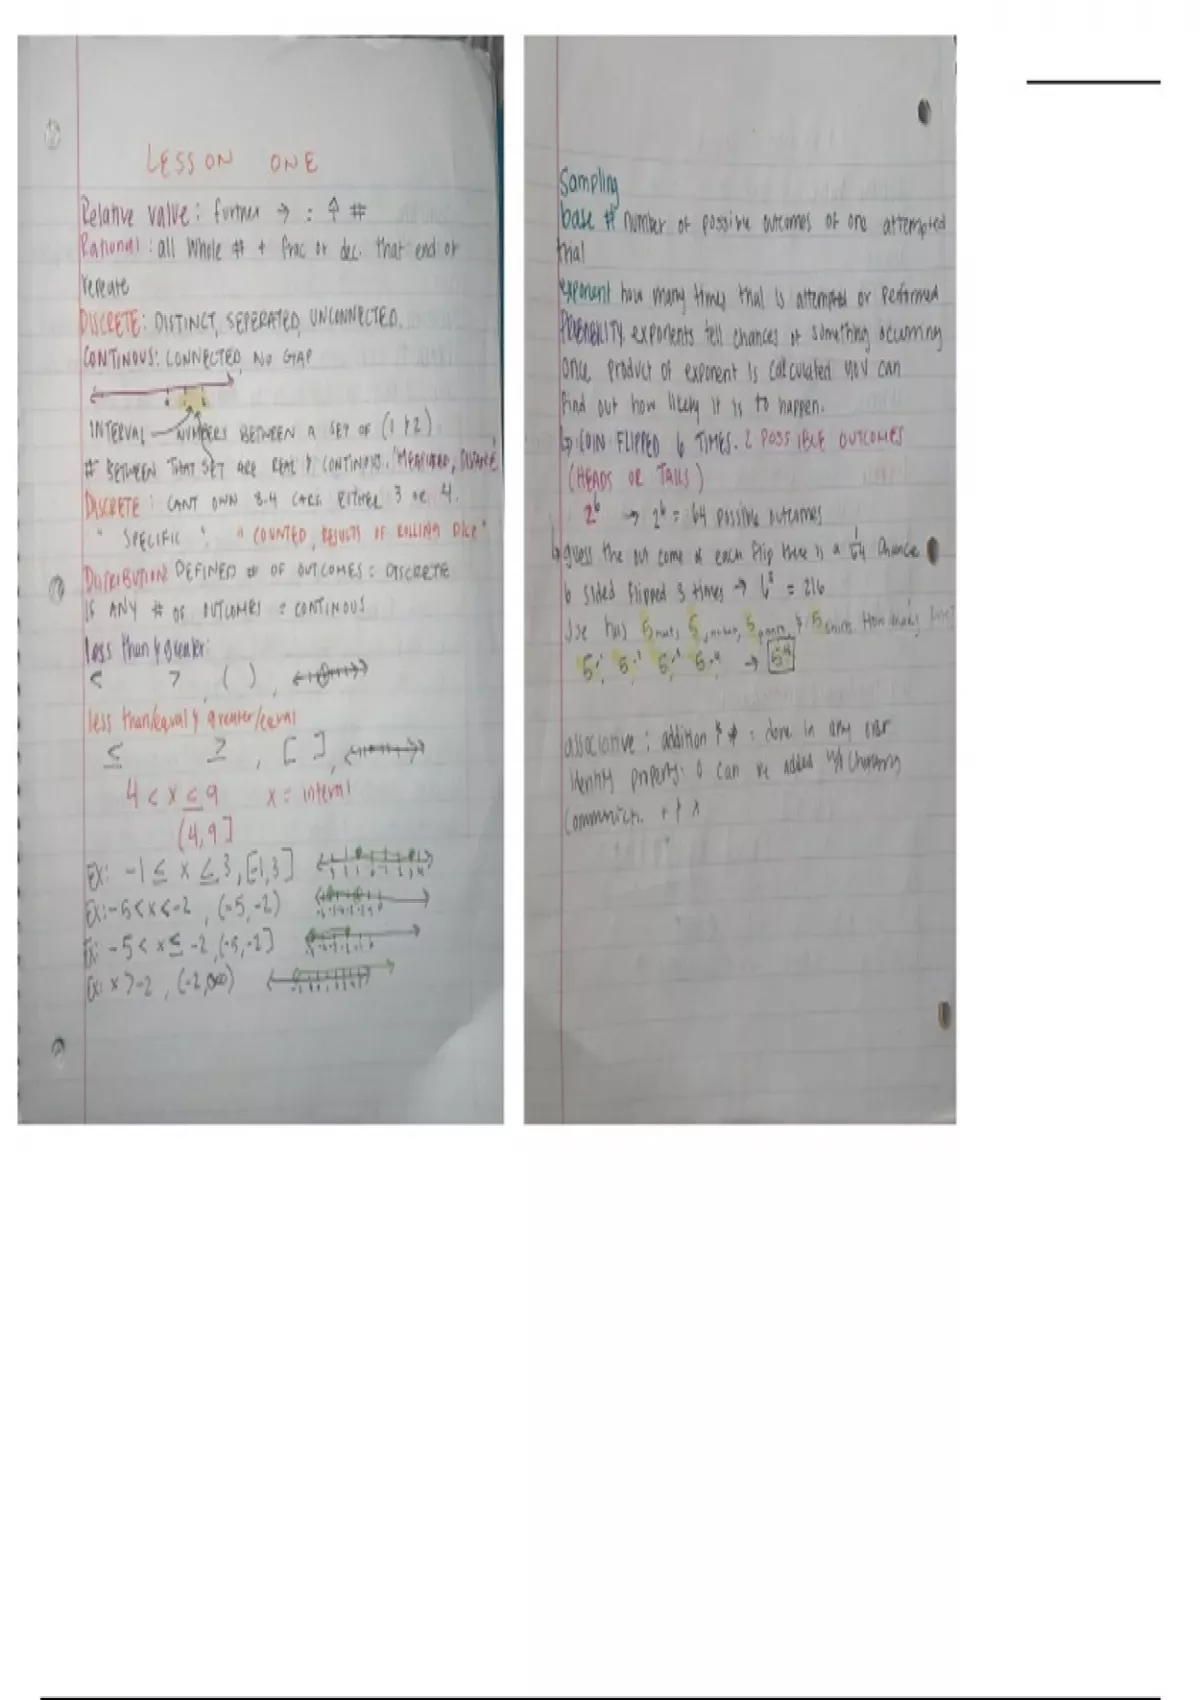 LESSON ONE
Relative value: further → : ↑ #
Rational: all whole # + frac or dec. that end or
repeate
DISCRETE: DISTINCT, SEPERATED, UNCONNECTED.
CONTINOUS: CONNECTED, NO GAP
INTERVAL NUMBERS BETWEEN A SET OF (1 & 2)
# BETWEEN THAT SET ARE REAL & CONTINOUS. "MEASURED, DISTANCE"
DISCRETE: CANT OWN 3.4 CARS. EITHER 3 OR 4.
"SPECIFIC". "COUNTED, RESULTS OF ROLLING DICE"
DISTRIBUTION: DEFINED # OF OUTCOMES = DISCRETE
IF ANY # OF OUTCOMES = CONTINOUS
less than & greater:
< > , ( ) ,
less than/equal & greater/equal
≤ ≥ , [ ] ,
4 < x ≤ 9 x = interval
(4,9]
Ex: -1 ≤ x ≤ 3, [-1,3]
Ex: -5 < x < -2, (-5,-2)
Ex: -5 < x ≤ -2, (-5,-2]
Ex: x > -2, (-2,∞)
Sampling
base # number of possible outcomes of one attempted
trial
exponent how many times trial is attempted or performed
PROBABILITY exponents tell chances of something occurring
once product of exponent is calculated you can
find out how likely it is to happen.
↳ COIN FLIPPED 6 TIMES. 2 POSSIBLE OUTCOMES
(HEADS OR TAILS)
2⁶ → 2⁶ = 64 possible outcomes
↳ guess the out come of each flip there is a 1/64 chance
6 sided flipped 3 times → 6³ = 216
has 5 hats, 5 , 5 pants, & 5 shirts. How many
5·¹ 5·² 5·³ 5·⁴ → 5⁴
associative: addition & * = done in any order
identity property: 0 can be added w/o changing
+ & x